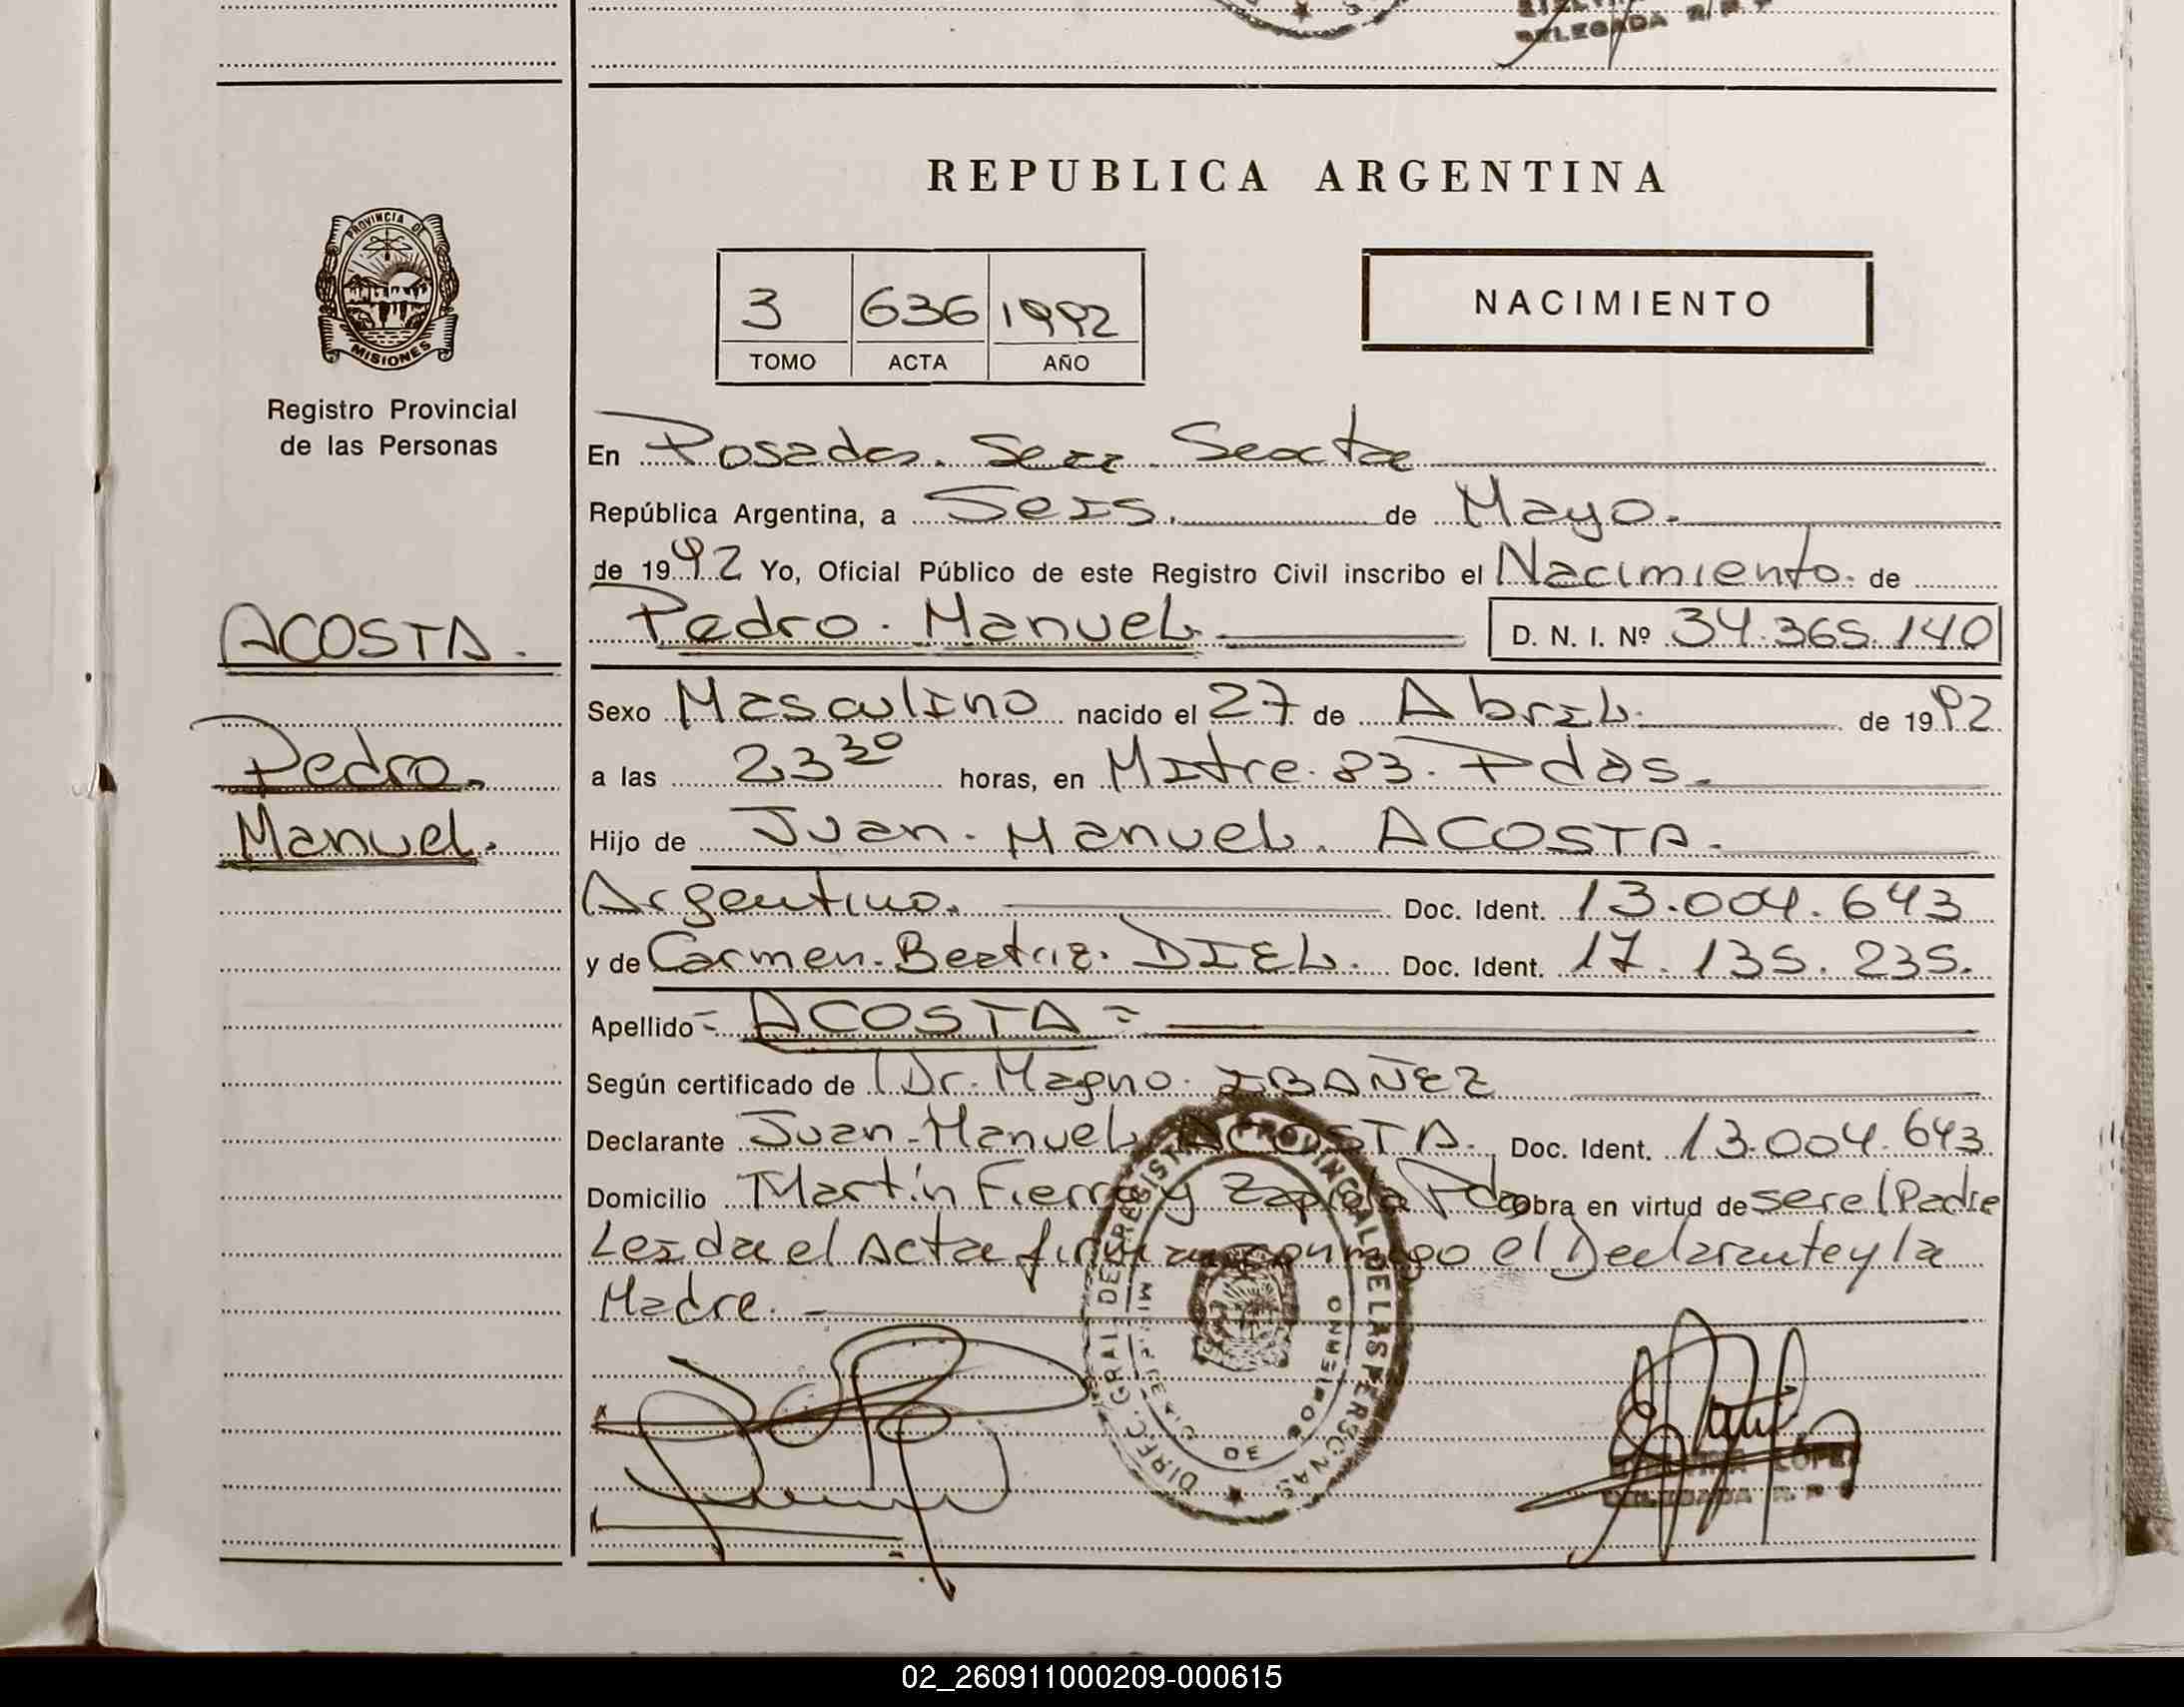 DELEGADA R.P.P
REPUBLICA ARGENTINA
PROVINCIA DE
MISIONES
Registro Provincial
de las Personas
3 636 1992
TOMO ACTA AÑO
NACIMIENTO
En Posadas. Secc. Sexta
República Argentina, a Seis. de Mayo.
de 1992 Yo, Oficial Público de este Registro Civil inscribo el Nacimiento. de
ACOSTA.
Pedro. Manuel D. N. I. Nº 34.365.140
Sexo Masculino nacido el 27 de Abril. de 1992
Pedro.
a las 23 30 horas, en Mitre. 83. Pdas.
Manuel.
Hijo de Juan. Manuel. ACOSTA.
Argentino. Doc. Ident. 13.004.643
y de Carmen. Beatriz. DIEL. Doc. Ident. 17.135.235.
Apellido = ACOSTA =
Según certificado de Dr. Magno. IBAÑEZ
Declarante Juan. Manuel ACOSTA. Doc. Ident. 13.004.643
Domicilio Martín Fierro y Zapiola Pdas obra en virtud de ser el Padre
Leida el Acta firman conmigo el Declarante y la
Madre.
DIREC. GRAL. DE REGISTRO PROVINCIAL DE LAS PERSONAS
LOPEZ
DELEGADA R.P.P
02_260911000209-000615